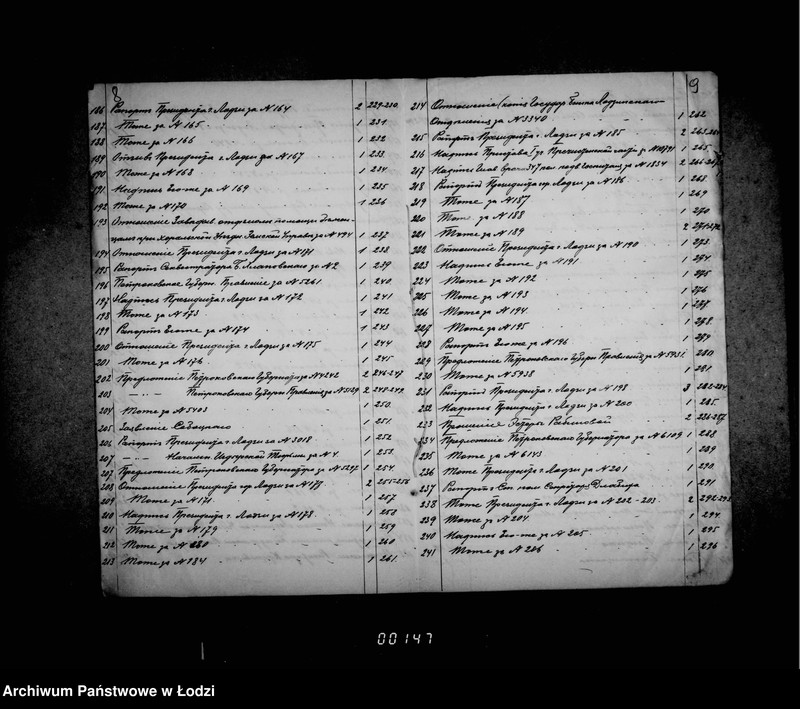 8
186 Рапортъ Президента г. Лодзи за N 164 2 229-230
187 Тоже за N 165 1 231
188 Тоже за N 166 1 232
189 Отзывъ Президента г. Лодзи за N 167 1 233
190 Тоже за N 168 1 234
191 Надпись Его-же за N 169 1 235
192 Тоже за N 170 1 236
193 Отношение Завѣдыв. отдѣленіемъ помощи
при Харьковской Уѣздн. Земской Управѣ за N 494 1 237
194 Отношеніе Президента г. Лодзи за N 171 1 238
195 Рапортъ за N 2 1 239
196 Петроковское Губерн. Правленіе за N 5261 1 240
197 Надпись Президента г. Лодзи за N 172 1 241
198 Тоже за N 173 1 242
199 Рапортъ Его-же за N 174 1 243
200 Отношеніе Президента г. Лодзи за N 175 1 244
201 Тоже за N 176 1 245
202 Предложеніе Петроковскаго Губернатора за N 4242 2 246-247
203 —·— Петроковскаго Губерн. Правленія за N 5129 2 248-249
204 Тоже за N 5403 1 250
205 Заявленіе 1 251
206 Рапортъ Президента г. Лодзи за N 3018 1 252
207 —·— Началн. Тюрьмы за N 4 1 253
207 Предложеніе Петроковскаго Губернатора за N 5227 1 254
208 Отношеніе Президента гор. Лодзи за N 178 2 255-256
209 Тоже за N 171 1 257
210 Надпись Президента г. Лодзи за N 178 1 258
211 Тоже за N 179 1 259
212 Тоже за N 180 1 260
213 Тоже за N 184 1 261
9
214 Отношеніе (копія) Государ. Банка Лодзинскаго
Отдѣленія за N 3340 1 262
215 Рапортъ Президента г. Лодзи за N 185 2 263-264
216 Надпись Пристава I за 1 265
217 Надпись за N 1834 2 266-267
218 Рапортъ Президента гор. Лодзи за N 186 1 268
219 Тоже за N 187 1 269
220 Тоже за N 188 1 270
221 Тоже за N 189 2 271-272
222 Отношеніе Президента г. Лодзи за N 190 1 273
223 Надпись Его-же за N 191 1 274
224 Тоже за N 192 1 275
225 Тоже за N 193 1 276
226 Тоже за N 194 1 277
227 Тоже за N 195 1 278
228 Рапортъ Его-же за N 196 1 279
229 Предложеніе Петроковскаго Губерн. Правленія за N 5931 1 280
230 Тоже за N 5938 1 281
231 Рапортъ Президента г. Лодзи за N 198 3 282-284
232 Надпись Президента г. Лодзи за N 200 1 285
233 Прошеніе 2 286-287
234 Предложеніе Петроковскаго Губернатора за N 6109 1 288
235 Тоже за N 6143 1 289
236 Тоже Президента г. Лодзи за N 201 1 290
237 Рапортъ 1 291
238 Тоже Президента г. Лодзи за N 202-203 2 292-293
239 Тоже за N 204 1 294
240 Надпись Его-же за N 205 1 295
241 Тоже за N 206 1 296
00147
Archiwum Państwowe w Łodzi